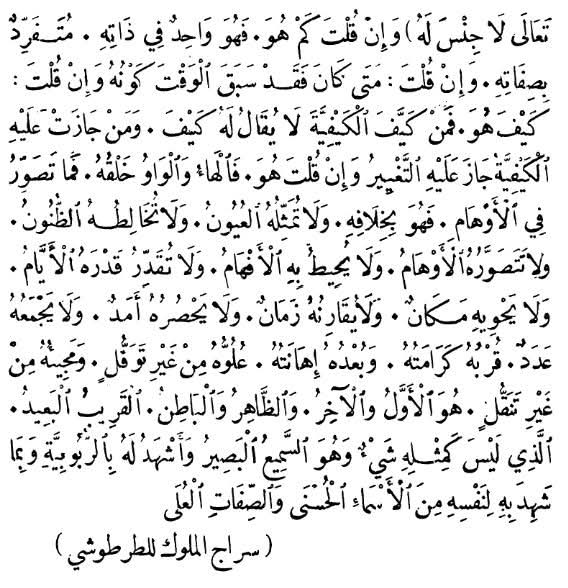 تَعَالَى لَا جِنْسَ لَهُ) وَإِنْ قُلْتَ كَمْ هُوَ. فَهُوَ وَاحِدٌ فِي ذَاتِهِ. مُتَفَرِّدٌ
بِصِفَاتِهِ. وَإِنْ قُلْتَ: مَتَى كَانَ فَقَدْ سَبَقَ الْوَقْتَ كَوْنُهُ وَإِنْ قُلْتَ:
كَيْفَ هُوَ. فَمَنْ كَيَّفَ الْكَيْفِيَّةَ لَا يُقَالُ لَهُ كَيْفَ. وَمَنْ جَازَتْ عَلَيْهِ
الْكَيْفِيَّةُ جَازَ عَلَيْهِ التَّغْيِيرُ وَإِنْ قُلْتَ هُوَ. فَالْهَاءُ وَالْوَاوُ خَلْقُهُ. فَمَا تَصَوَّرَ
فِي الْأَوْهَامِ. فَهُوَ بِخِلَافِهِ. وَلَا تُمَثِّلُهُ الْعُيُونُ. وَلَا تُخَالِطُهُ الظُّنُونُ.
وَلَا تَتَصَوَّرُهُ الْأَوْهَامُ. وَلَا يُحِيطُ بِهِ الْأَفْهَامُ. وَلَا تُقَدِّرُ قَدْرَهُ الْأَيَّامُ.
وَلَا يَحْوِيهِ مَكَانٌ. وَلَا يُقَارِنُهُ زَمَانٌ. وَلَا يَحْصُرُهُ أَمَدٌ. وَلَا يَجْمَعُهُ
عَدَدٌ. قُرْبُهُ كَرَامَتُهُ. وَبُعْدُهُ إِهَانَتُهُ. عُلُوُّهُ مِنْ غَيْرِ تَوَقُّلٍ. وَمَجِيئُهُ مِنْ
غَيْرِ تَنَقُّلٍ. هُوَ الْأَوَّلُ وَالْآخِرُ. وَالظَّاهِرُ وَالْبَاطِنُ. الْقَرِيبُ الْبَعِيدُ.
الَّذِي لَيْسَ كَمِثْلِهِ شَيْءٌ وَهُوَ السَّمِيعُ الْبَصِيرُ وَأَشْهَدُ لَهُ بِالرُّبُوبِيَّةِ وَبِمَا
شَهِدَ بِهِ لِنَفْسِهِ مِنَ الْأَسْمَاءِ الْحُسْنَى وَالصِّفَاتِ الْعُلَى
(سراج الملوك للطرطوشي)